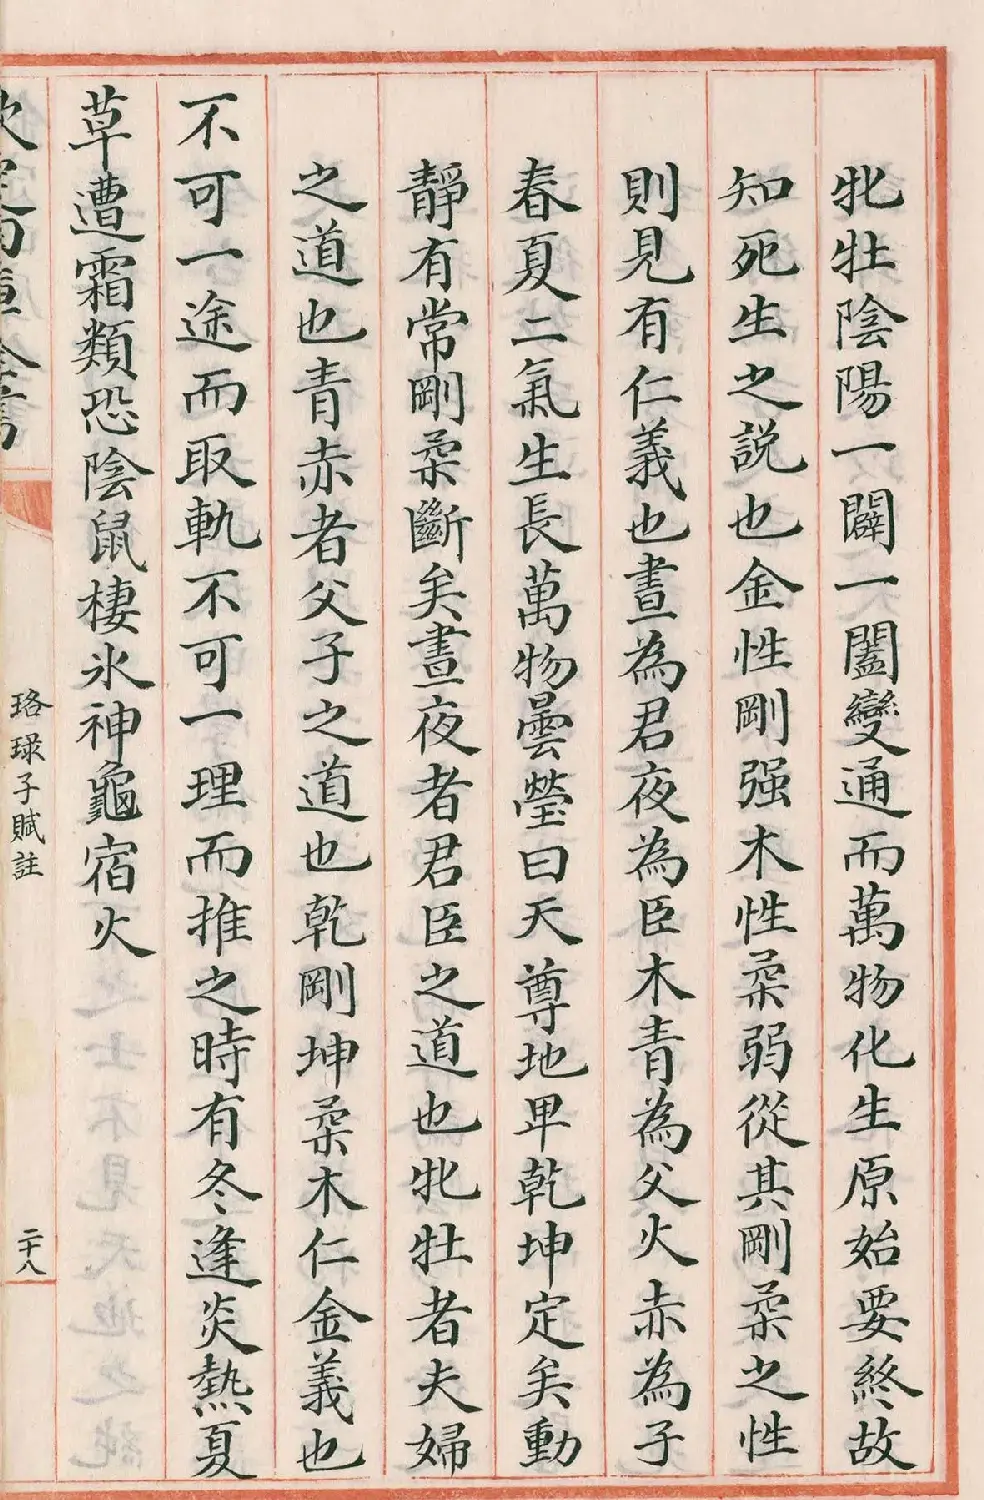 牝牡陰陽一闢一闔變通而萬物化生原始要終故
知死生之説也金性剛强木性柔弱從其剛柔之性
則見有仁義也晝為君夜為臣木青為父火赤為子
春夏二氣生長萬物曇瑩曰天尊地卑乾坤定矣動
靜有常剛柔斷矣晝夜者君臣之道也牝牡者夫婦
之道也青赤者父子之道也乾剛坤柔木仁金義也
不可一途而取軌不可一理而推之時有冬逢炎熱夏
草遭霜類恐陰鼠棲氷神龜宿火
欽定四庫全書
珞琭子賦註
二十八